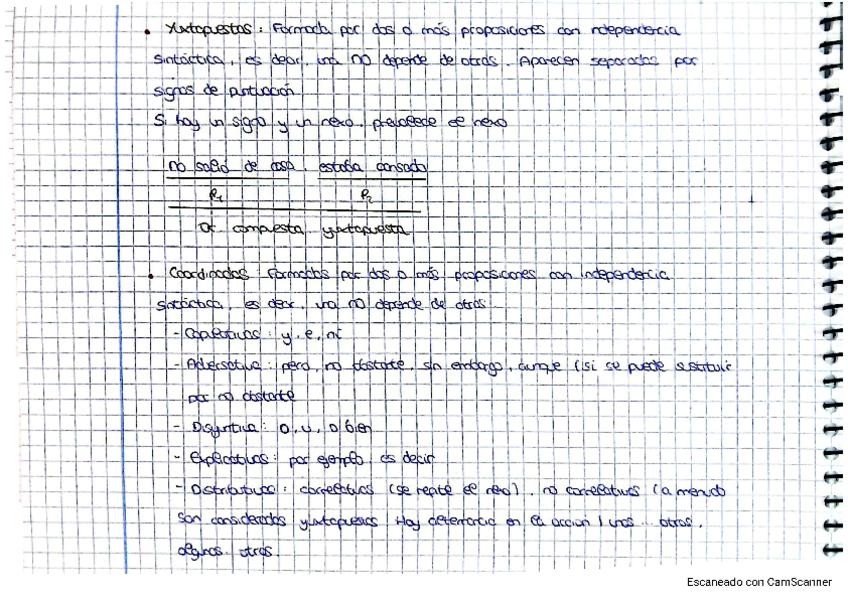 • Yuxtapuestas: Formada por dos o más proposiciones con independencia
sintáctica, es decir, una no depende de otras. Aparecen separadas por
signos de puntuación.
Si hay un signo y un nexo, prevalece el nexo
no salió de casa, estaba cansado
P1 P2
O. compuesta yuxtapuesta
• Coordinadas formadas por dos o más proposiciones con independencia
sintáctica, es decir, una no depende de otras
- Copulativas: y, e, ni
- Adversativa: pero, no obstante, sin embargo, aunque (si se puede sustituir
por no obstante
- Disyuntiva: o, u, o bien
- Explicativas: por ejemplo, es decir
- Distributivas: correlativas (se repite el nexo), no correlativas (a menudo
son consideradas yuxtapuestas. Hay en la acción) unos... otros,
algunos... otros.
Escaneado con CamScanner